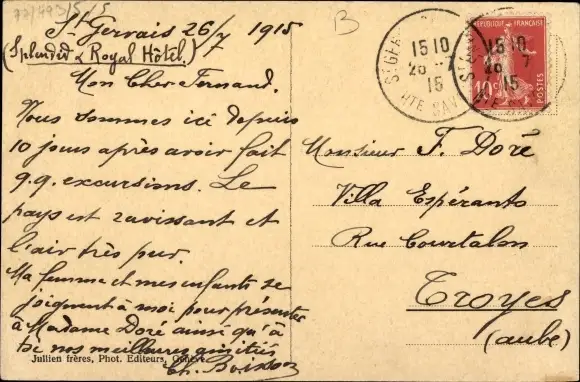 St Gervais 26/7 1915
(Splendid & Royal Hôtel.)
Mon Cher Fernand.
Nous sommes ici depuis
10 jours après avoir fait
q.q. excursions. Le
pays est ravissant et
l'air très pur.
Ma femme et mes enfants se
joignent à moi pour présenter
à Madame Doré ainsi qu'à
toi nos meilleures amitiés
Ch.
Jullien frères, Phot. Editeurs, Genève.
B
15 10
26 -7
15
RÉPUBLIQUE FRANÇAISE
10c
POSTES
15 10
26 7
15
Monsieur F. Doré
Villa Espéranto
Rue Courtalon
Troyes
(aube)